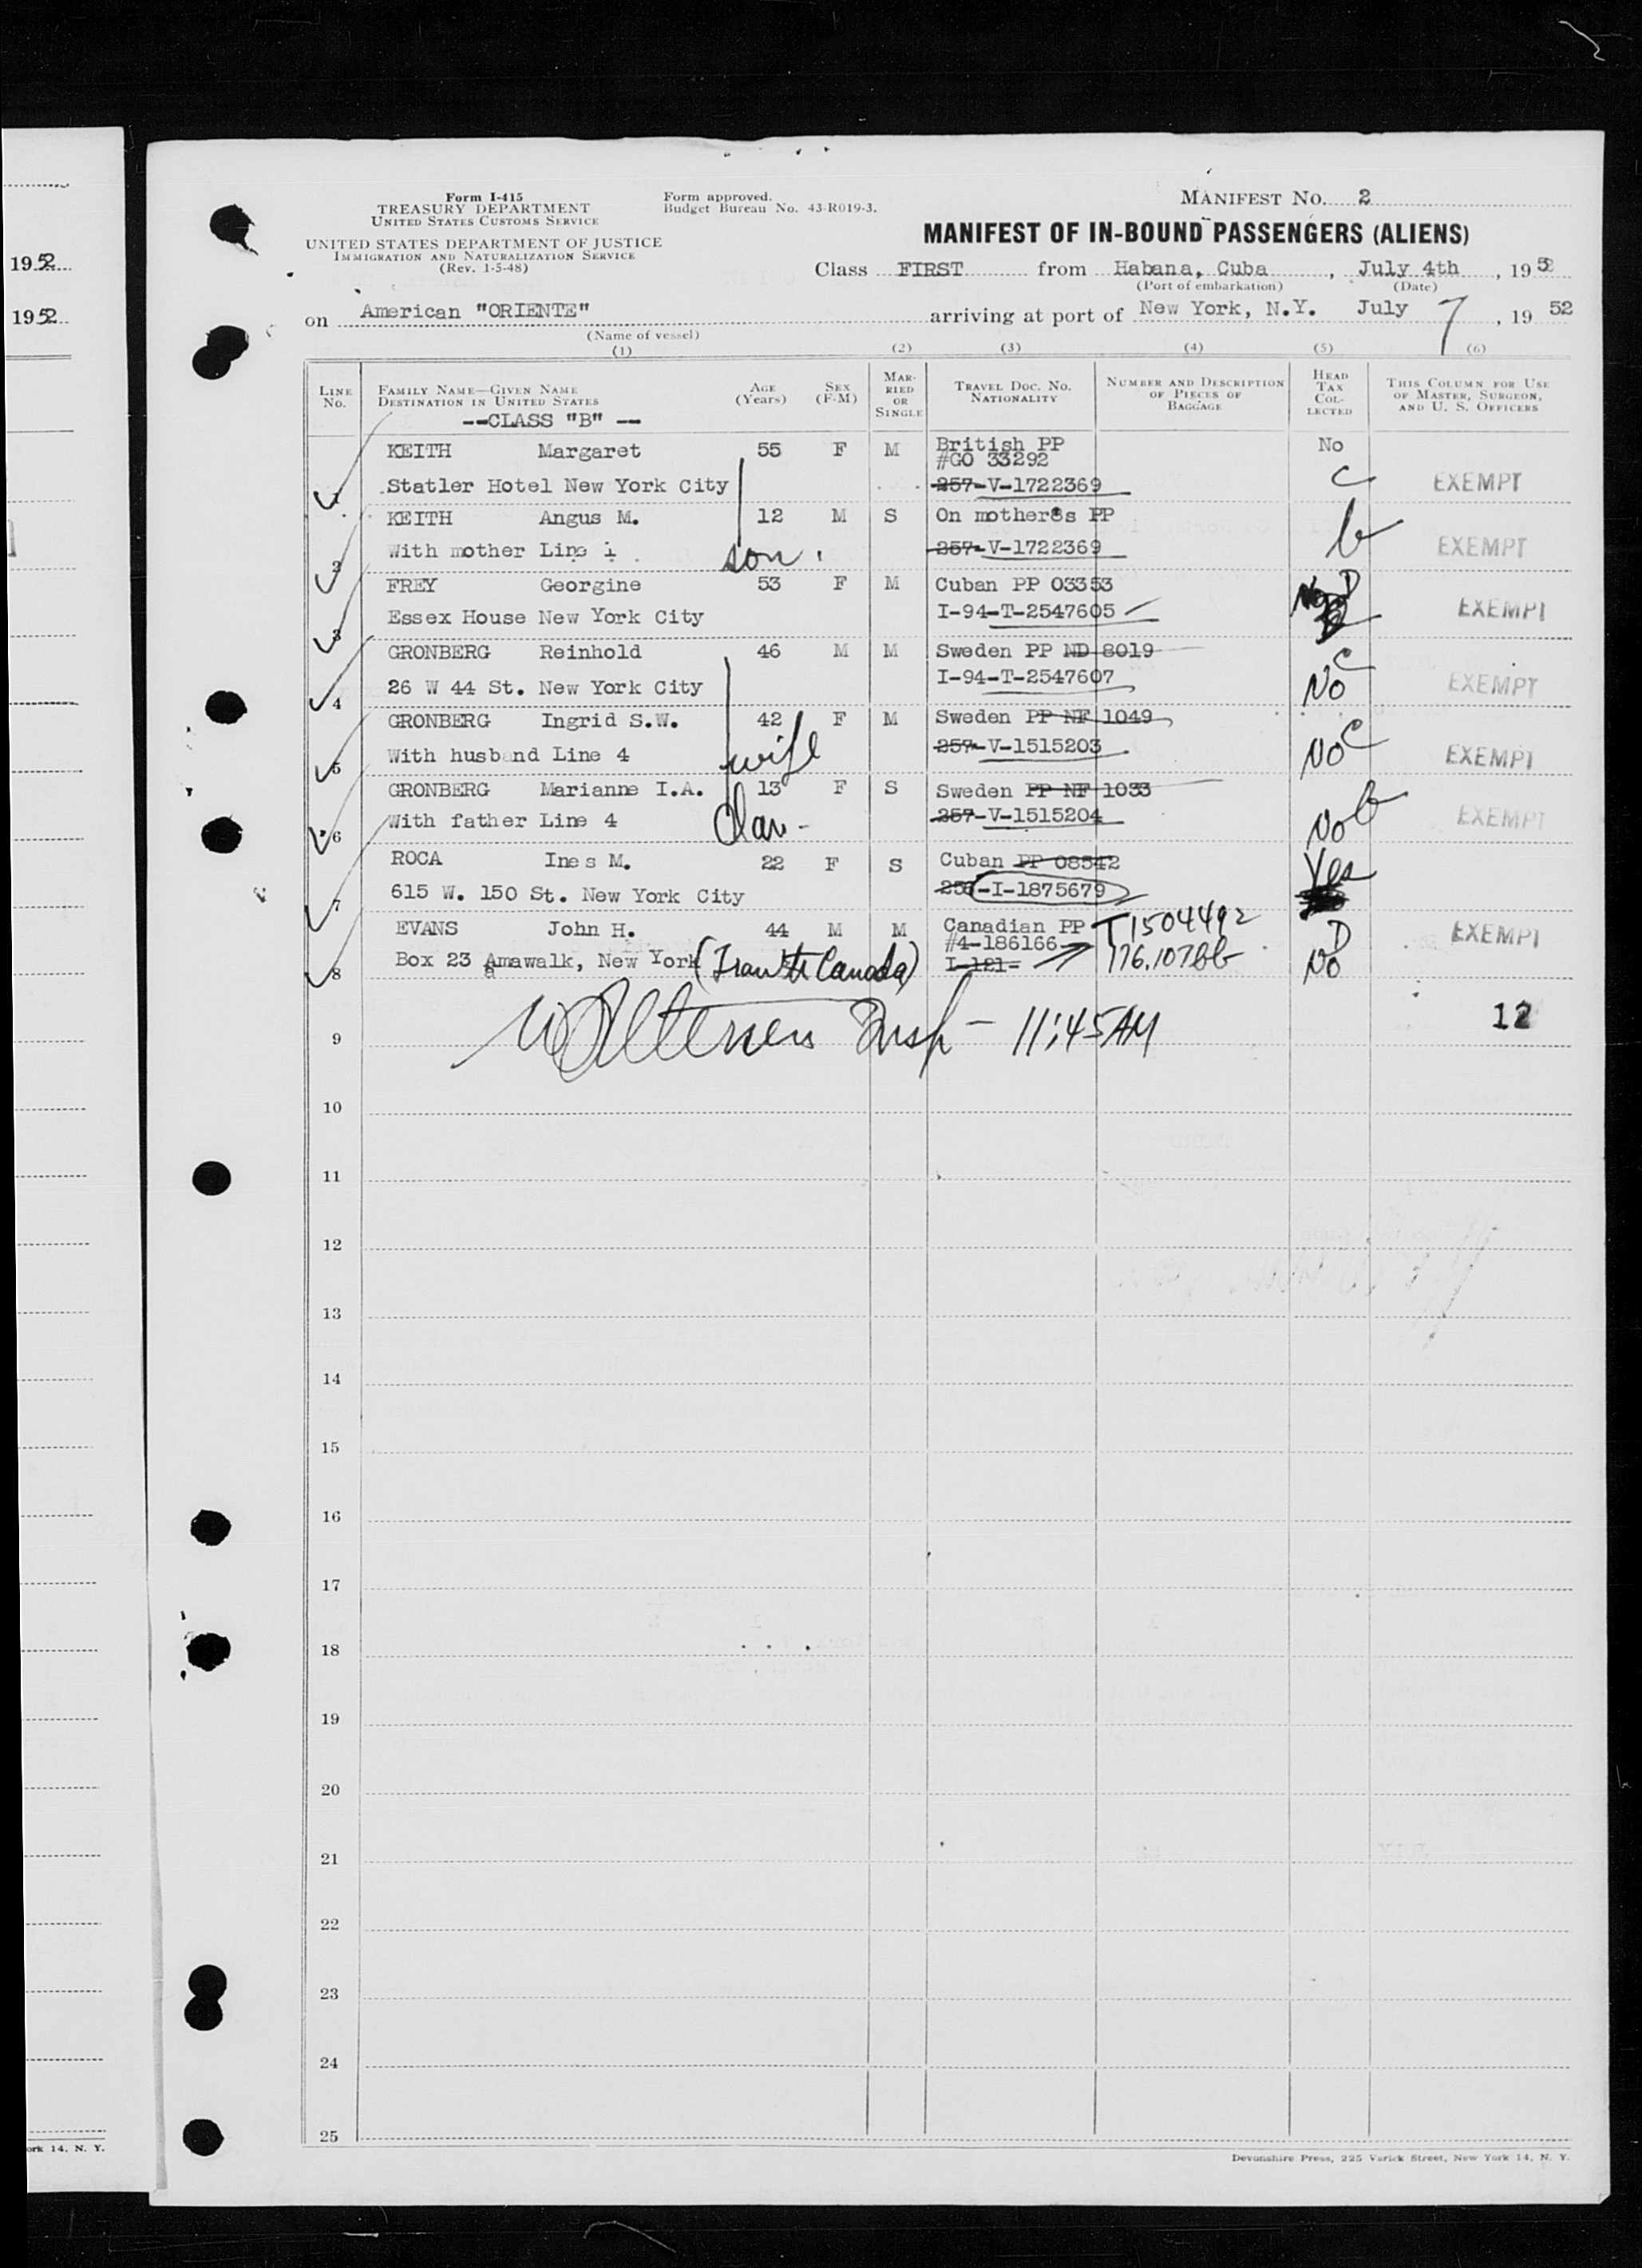 1952
1952
ork 14, N. Y.
Form I-415
TREASURY DEPARTMENT
UNITED STATES CUSTOMS SERVICE
UNITED STATES DEPARTMENT OF JUSTICE
IMMIGRATION AND NATURALIZATION SERVICE
(Rev. 1-5-48)
Form approved.
Budget Bureau No. 43-R019-3.
MANIFEST No. 2
MANIFEST OF IN-BOUND PASSENGERS (ALIENS)
Class FIRST from Habana, Cuba, July 4th, 1952
(Port of embarkation) (Date)
on American "ORIENTE" arriving at port of New York, N.Y. July 7, 19 52
(Name of vessel)
(1) (2) (3) (4) (5) (6)
LINE No. FAMILY NAME—GIVEN NAME DESTINATION IN UNITED STATES AGE (Years) SEX (F-M) MARRIED OR SINGLE TRAVEL DOC. NO. NATIONALITY NUMBER AND DESCRIPTION OF PIECES OF BAGGAGE HEAD TAX COLLECTED THIS COLUMN FOR USE OF MASTER, SURGEON, AND U. S. OFFICERS
--CLASS "B" --
KEITH Margaret 55 F M British PP No
#GO 33292
1 Statler Hotel New York City 257-V-1722369 C EXEMPT
KEITH Angus M. 12 M S On mother8s PP b
2 With mother Line 1 son. 257-V-1722369 EXEMPT
FREY Georgine 53 F M Cuban PP 03353 No D
3 Essex House New York City I-94-T-2547605 EXEMPT
GRONBERG Reinhold 46 M M Sweden PP ND 8019 C
4 26 W 44 St. New York City I-94-T-2547607 No EXEMPT
GRONBERG Ingrid S.W. 42 F M Sweden PP NF 1049 C
5 With husband Line 4 wife 257-V-1515203 No EXEMPT
GRONBERG Marianne I.A. 13 F S Sweden PP NF 1033 b
6 With father Line 4 dau- 257-V-1515204 No EXEMPT
ROCA Ines M. 22 F S Cuban PP 08542 Yes
7 615 W. 150 St. New York City -I-1875679
EVANS John H. 44 M M Canadian PP T1504492 D EXEMPT
#4-186166
8 Box 23 Amawalk, New York (Transit Canada) I-121- 176.107bb No
9 Insp - 11:45AM 12
10
11
12
13
14
15
16
17
18
19
20
21
22
23
24
25
Devonshire Press, 225 Varick Street, New York 14, N. Y.